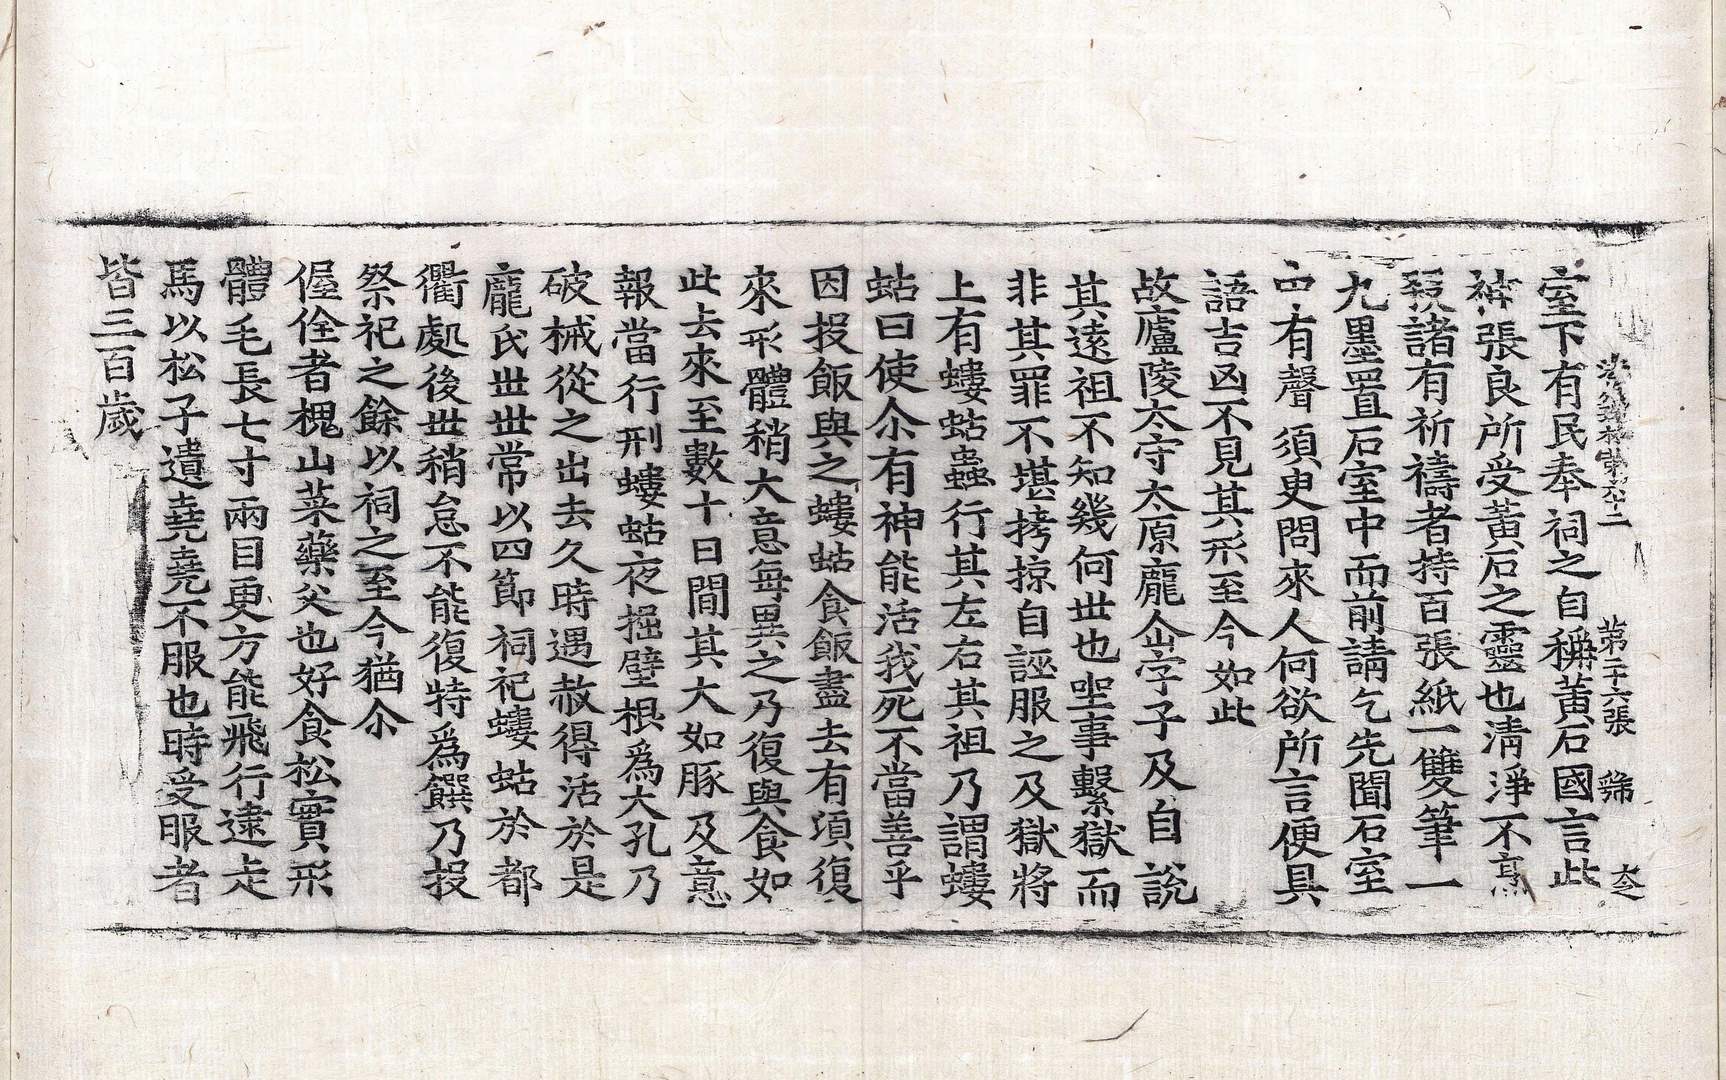 法苑珠林第六十二 第二十六張 號 大念
室下有民奉祠之自稱黃石國言此
神張良所受黃石之靈也清淨不烹
殺諸有祈禱者持百張紙一雙筆一
九墨置石室中而前請乞先聞石室
中有聲須臾問來人何欲所言便具
語吉凶不見其形至今如此
故廬陵太守太原龐企字子及自說
其遠祖不知幾何世也坐事繫獄而
非其罪不堪拷掠自誣服之及獄將
上有螻蛄蟲行其左右其祖乃謂螻
蛄曰使尒有神能活我死不當善乎
因投飯與之螻蛄食飯盡去有頃復
來形體稍大意每異之乃復與食如
此去來至數十日間其大如豚及意
報當行刑螻蛄夜掘壁根為大孔乃
破械從之出去久時遇赦得活於是
龐氏世世常以四節祠祀螻蛄於都
衢處後世稍怠不能復特為饌乃投
祭祀之餘以祠之至今猶尒
偓佺者槐山菜藥父也好食松實形
體毛長七寸兩目更方能飛行逮走
馬以松子遺堯堯不服也時受服者
皆三百歲